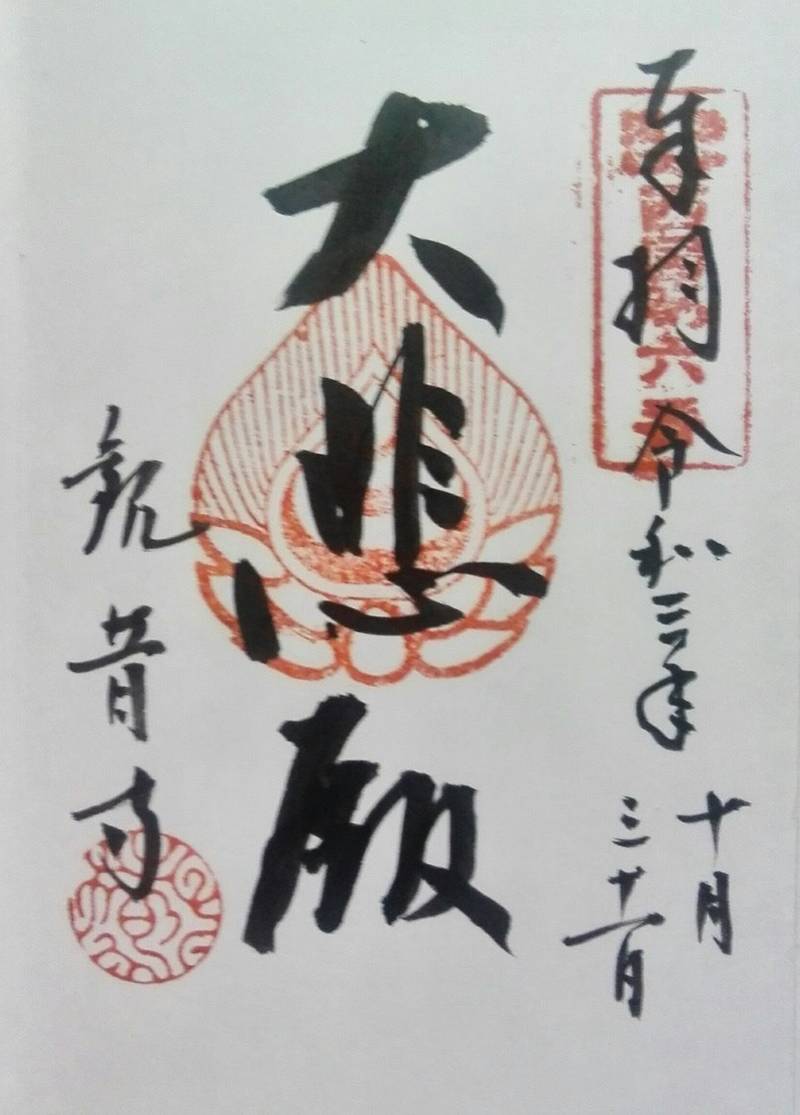 奉拝 令和三年
十月
三十一日
大悲殿
観音寺